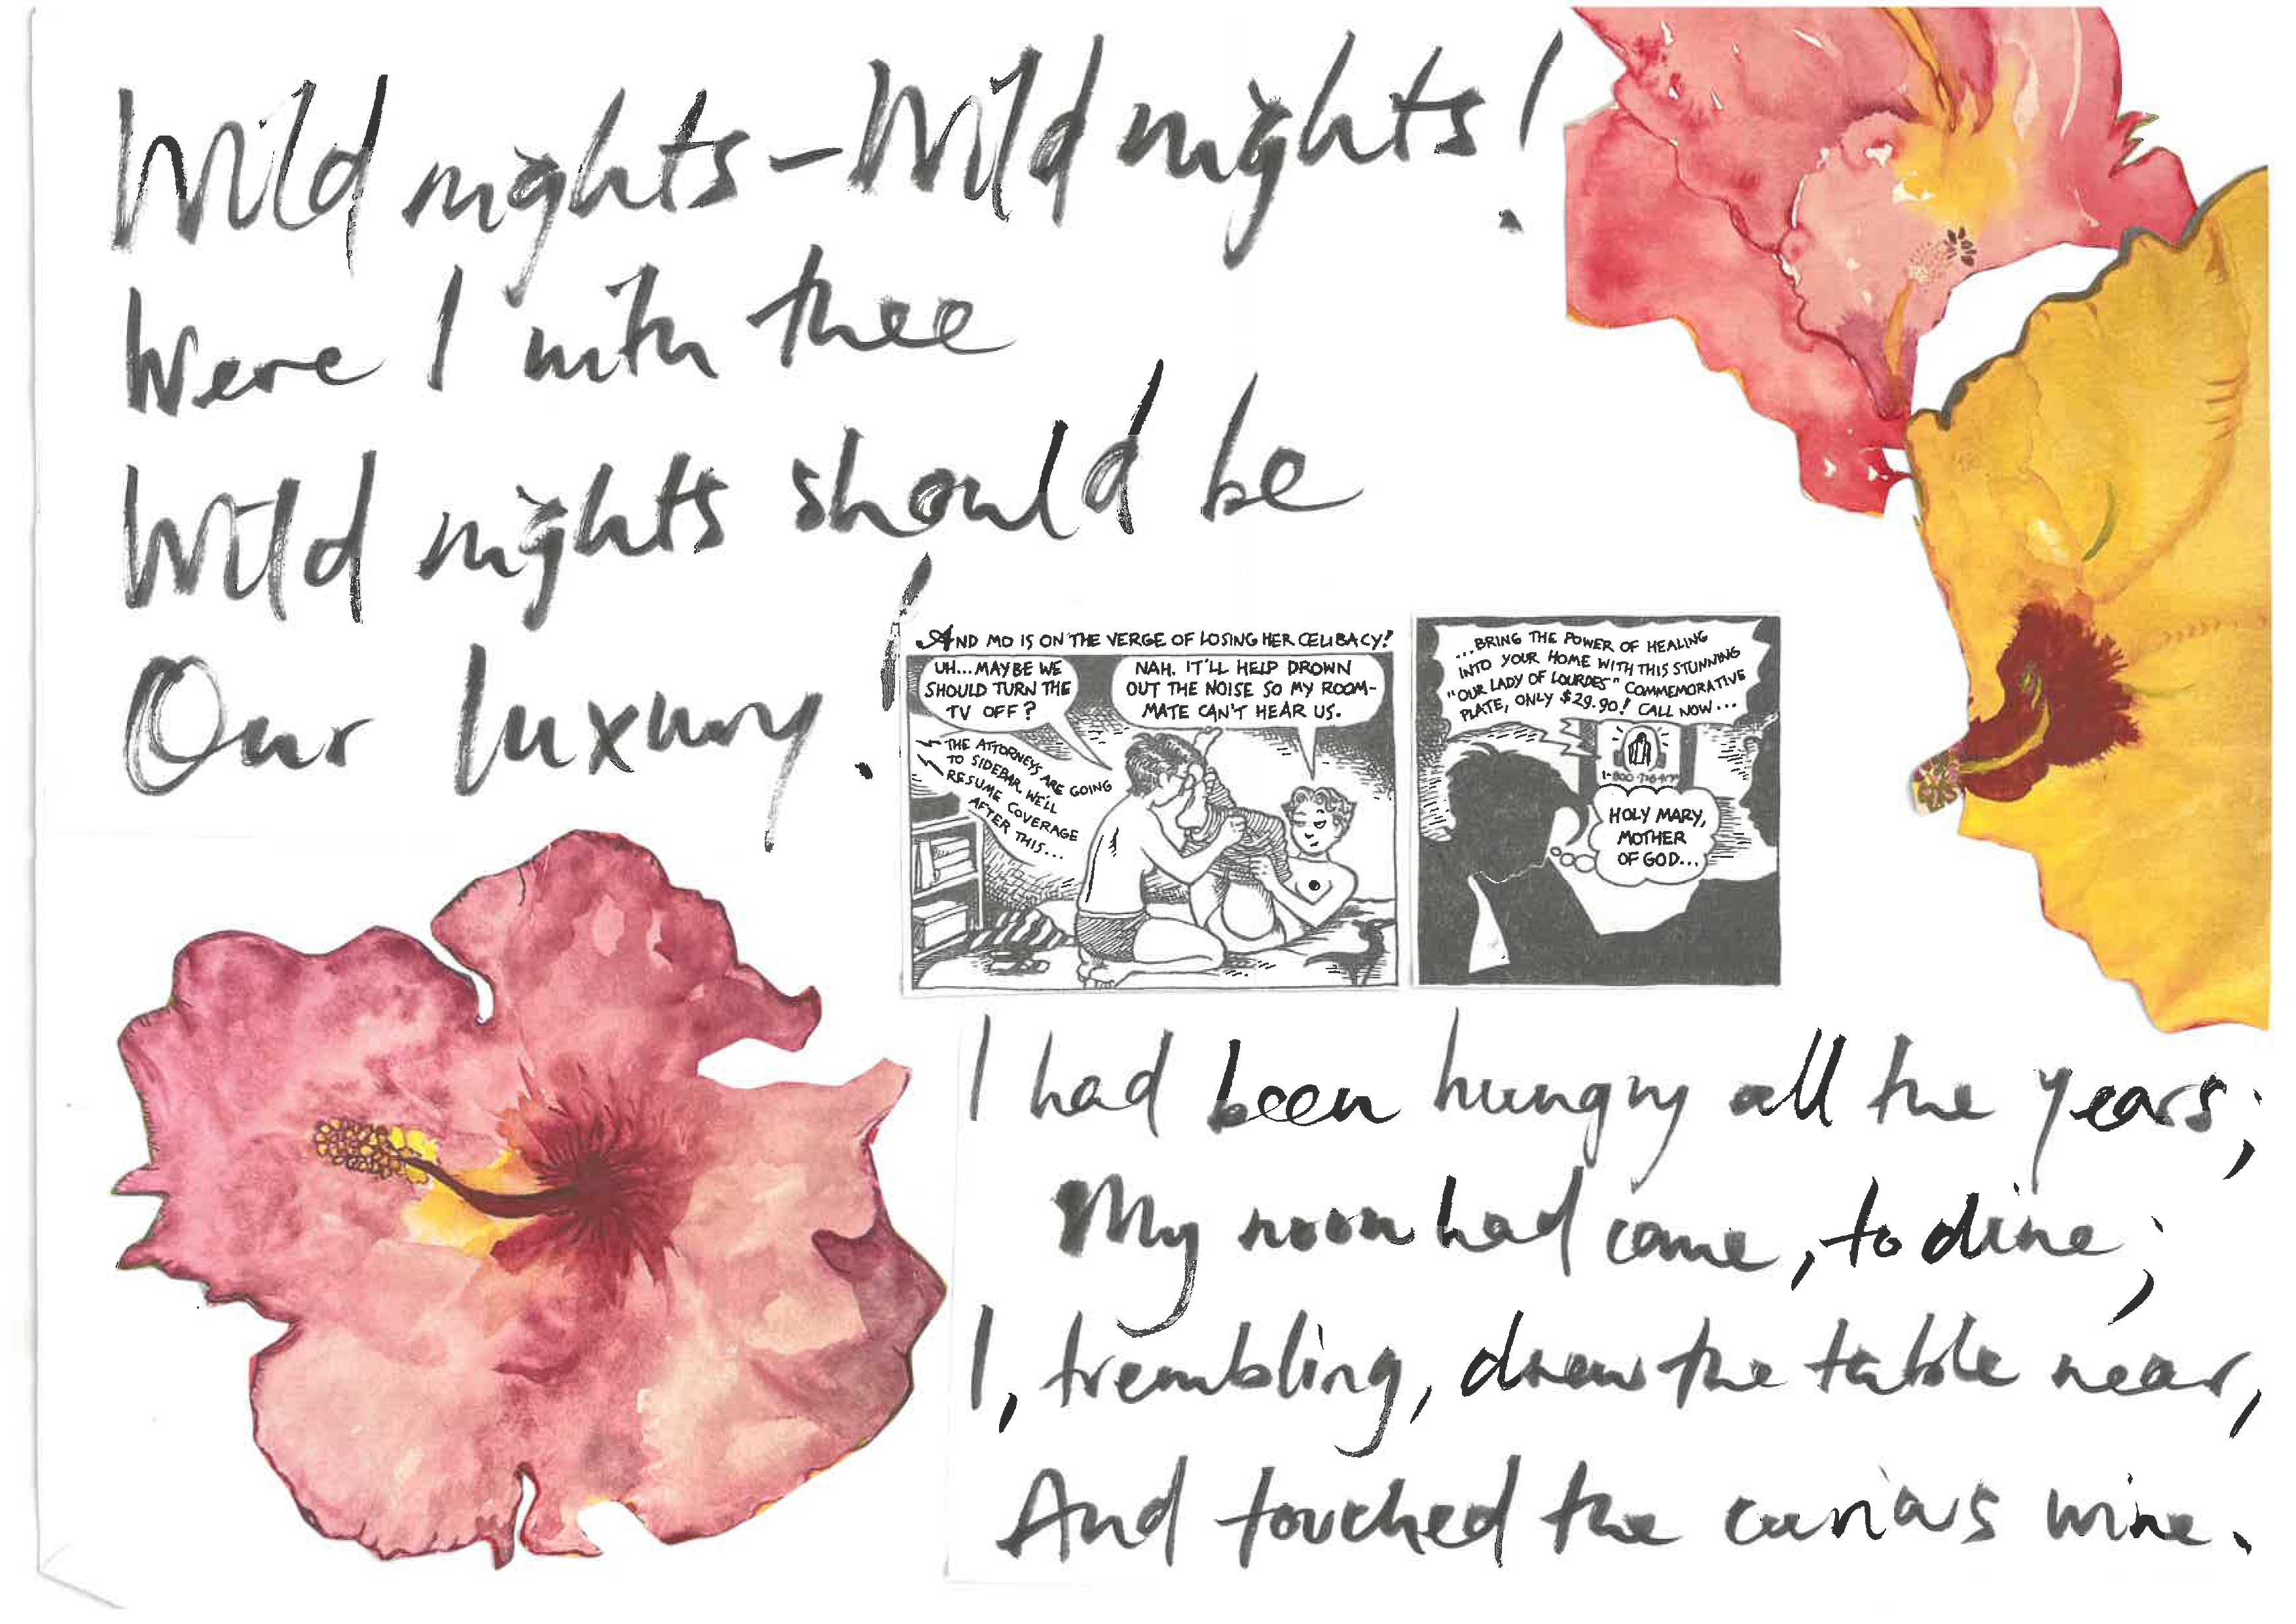 Wild nights – Wild nights!
Were I with thee
Wild nights should be
Our luxury!
AND MO IS ON THE VERGE OF LOSING HER CELIBACY!
UH...MAYBE WE
SHOULD TURN THE
TV OFF?
NAH. IT'LL HELP DROWN
OUT THE NOISE SO MY ROOM-
MATE CAN'T HEAR US.
THE ATTORNEYS ARE GOING
TO SIDEBAR. WE'LL
RESUME COVERAGE
AFTER THIS...
...BRING THE POWER OF HEALING
INTO YOUR HOME WITH THIS STUNNING
"OUR LADY OF LOURDES" COMMEMORATIVE
PLATE, ONLY $29.90! CALL NOW...
HOLY MARY,
MOTHER
OF GOD...
I had been hungry all the years;
My noon had come, to dine;
I, trembling, drew the table near,
And touched the curious wine.